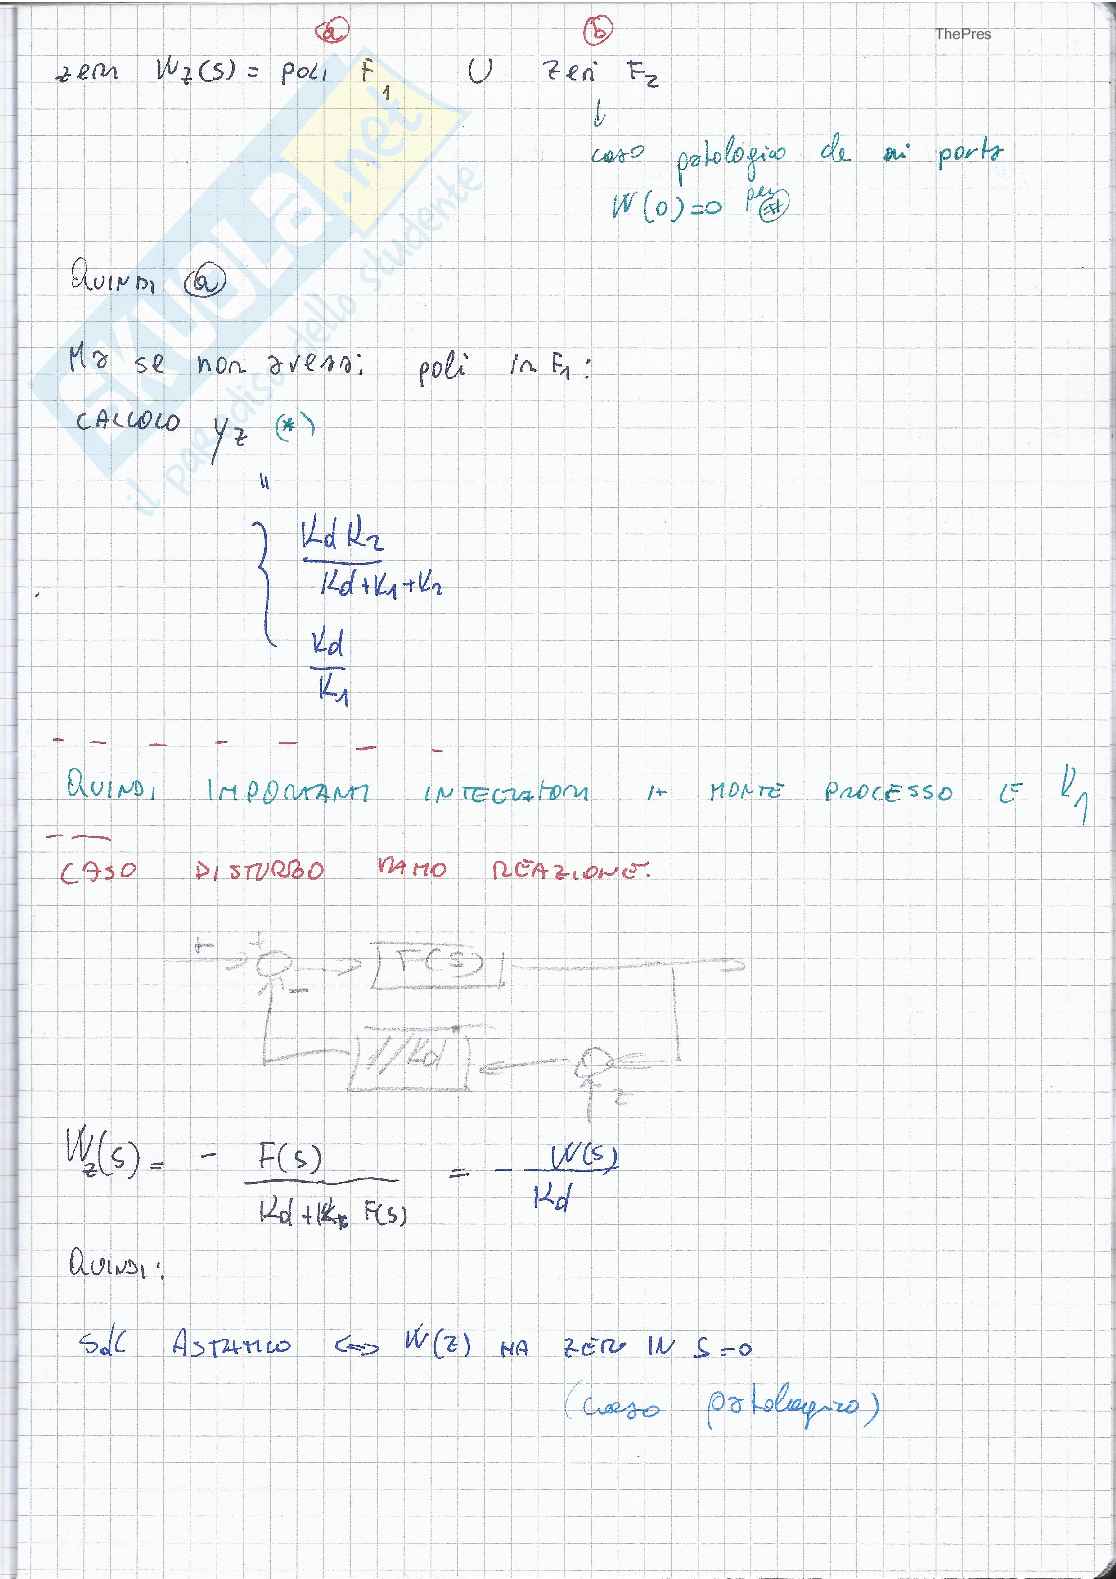 ⓐ ⓑ ThePres
zeri Wz(s) = poli F1 ∪ zeri F2
↓
caso patologico che mi porta
W(0)=0 per (*)
SKUOLA.net
il paradiso dello studente
QUINDI ⓐ
Ma se non avessi poli in F1:
CALCOLO yz (*)
"
Kd K2
Kd+K1+K2
Kd
K1
QUINDI IMPORTANTI INTEGRATORI A MONTE PROCESSO E K1
CASO DISTURBO RAMO REAZIONE.
+ + F(s)
-
1/Kd
z
Wz(s) = - F(s) / Kd + F(s) = - W(s) / Kd
QUINDI:
SdC ASTATICO <=> W(z) HA ZERO IN S=0
(caso patologico)